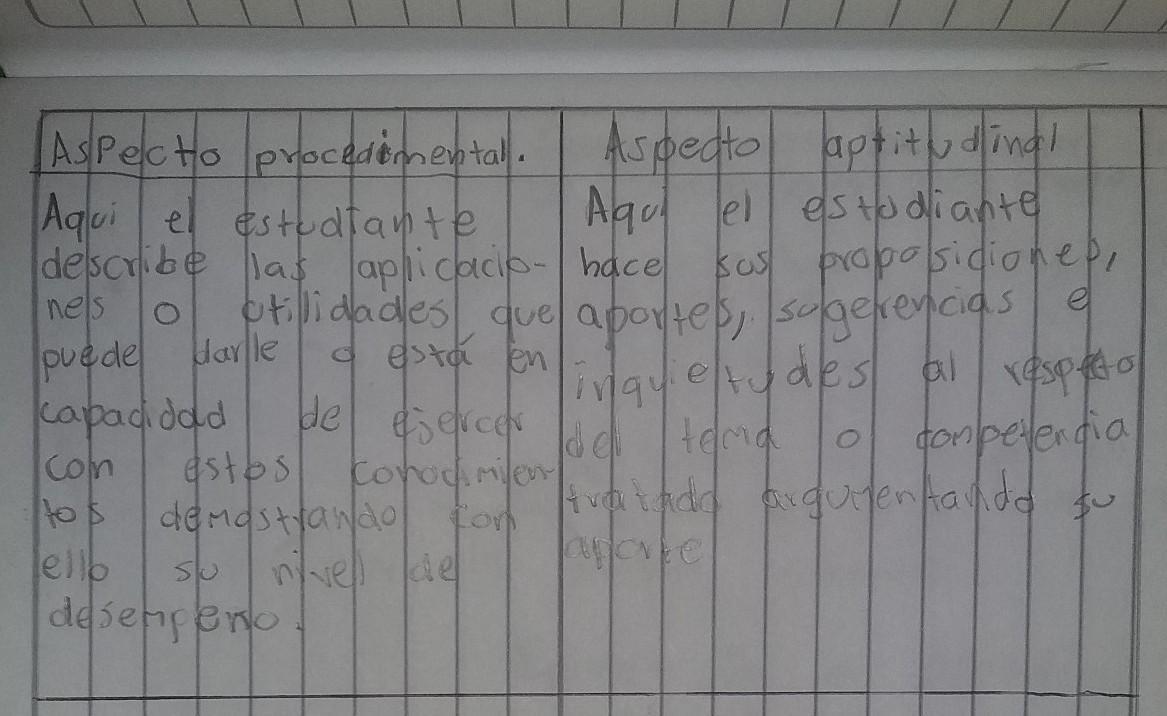 Aspecto procedimental.
Aqui el estudiante
describe las aplicacio-
nes o utilidades que
puede darle o está en
capacidad de ejercer
con estos conocimien
tos demostrando con
ello su nivel de
desempeno.
Aspecto aptitudinal
Aqui el estudiante
hace sus proposiciones,
aportes, sugerencias e
inquietudes al respecto
del tema o conpetencia
tratado argumentando su
aporte